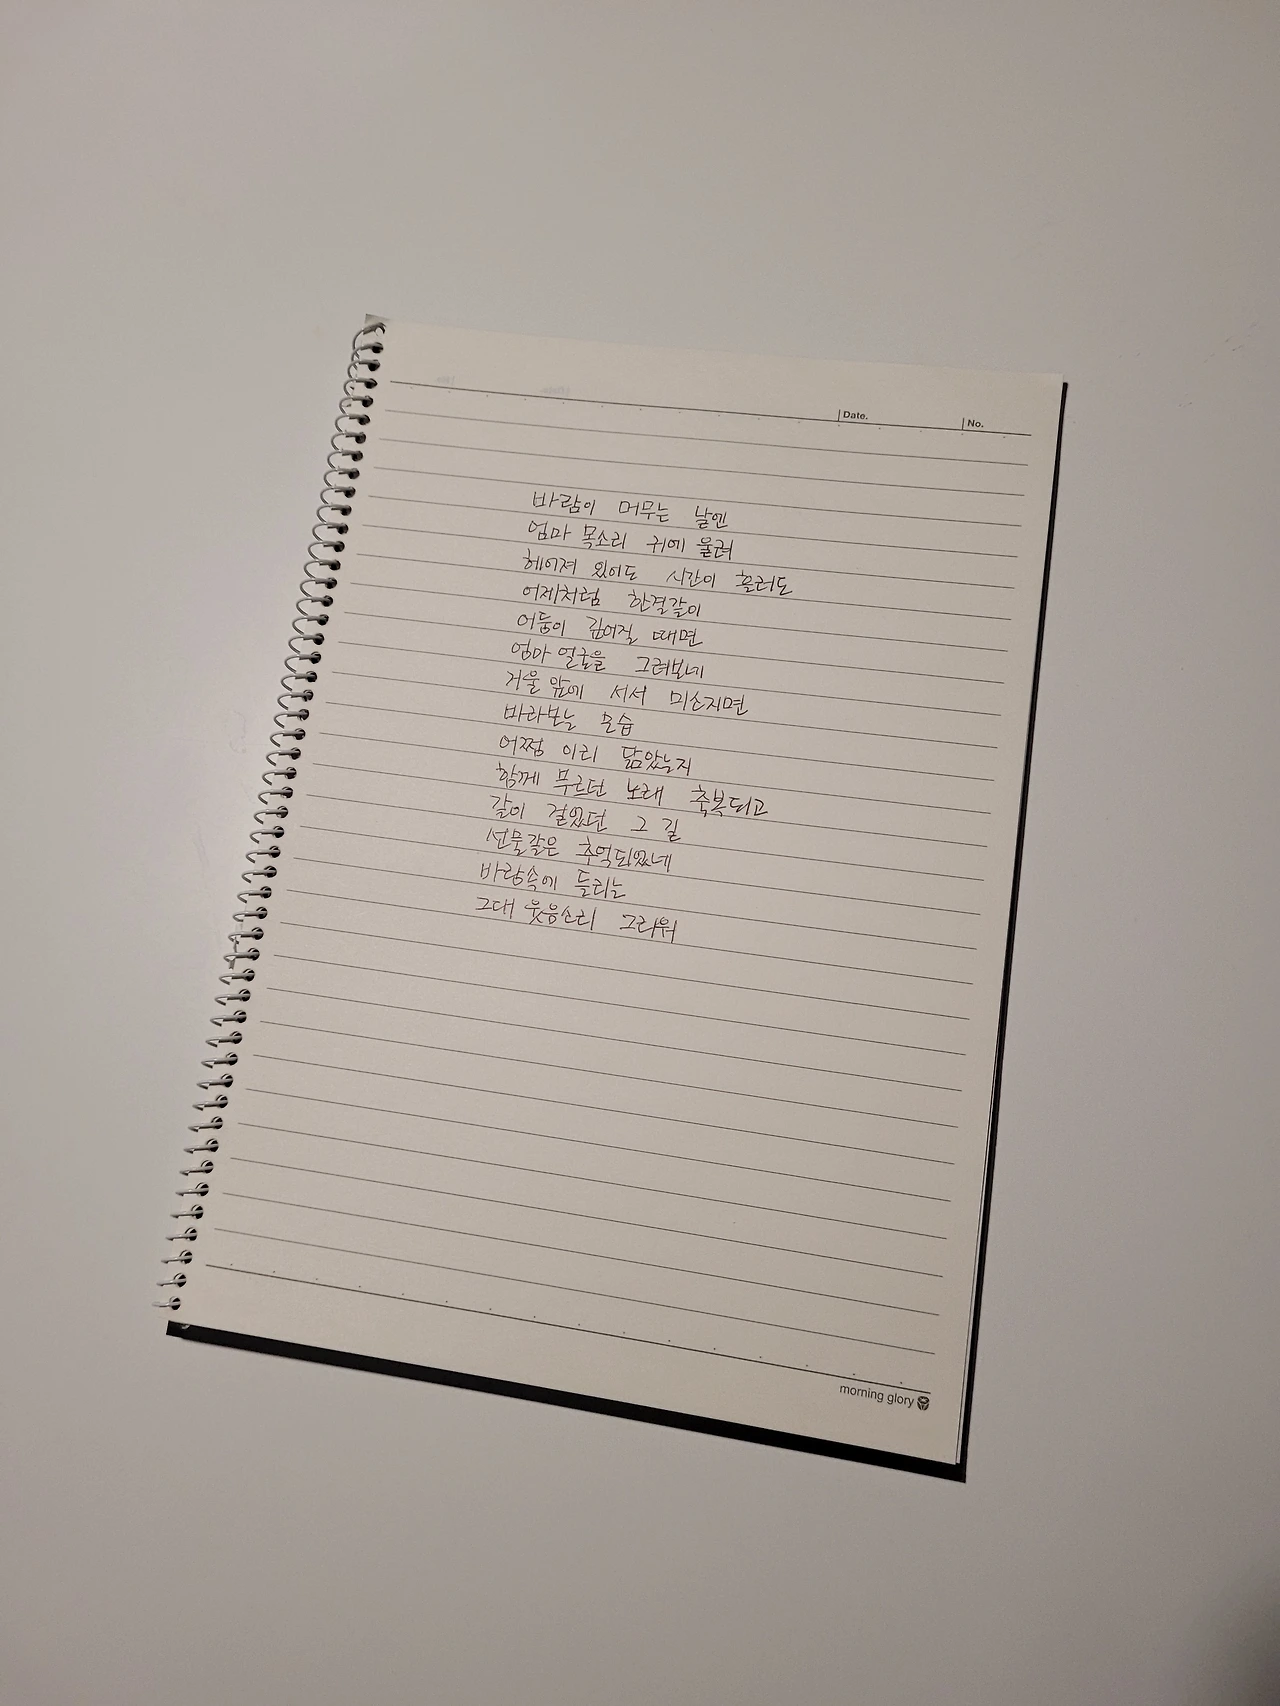 Date. No.
바람이 머무는 날엔
엄마 목소리 귀에 울려
헤어져 있어도 시간이 흘러도
어제처럼 한결같이
어둠이 깊어질 때면
엄마 얼굴을 그려보네
거울 앞에 서서 미소지면
바라보는 모습
어쩜 이리 닮았는지
함께 부르던 노래 축복되고
같이 걸었던 그 길
선물같은 추억되었네
바람속에 들리는
그대 웃음소리 그리워
morning glory